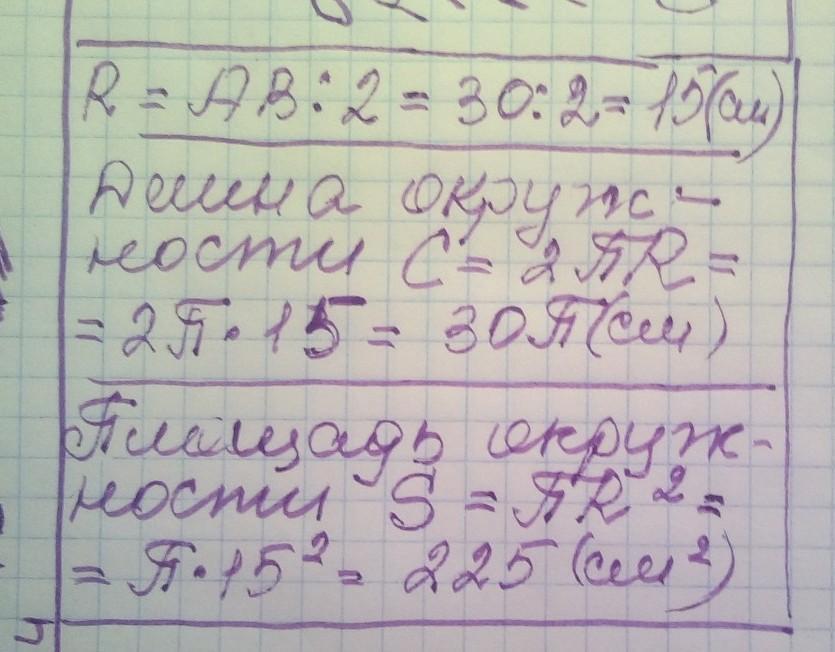 R = АВ : 2 = 30 : 2 = 15 (см)
Длина окруж-
ности C = 2ПR =
= 2П · 15 = 30П (см)
Площадь окруж-
ности S = ПR² =
= П · 15² = 225 (см²)